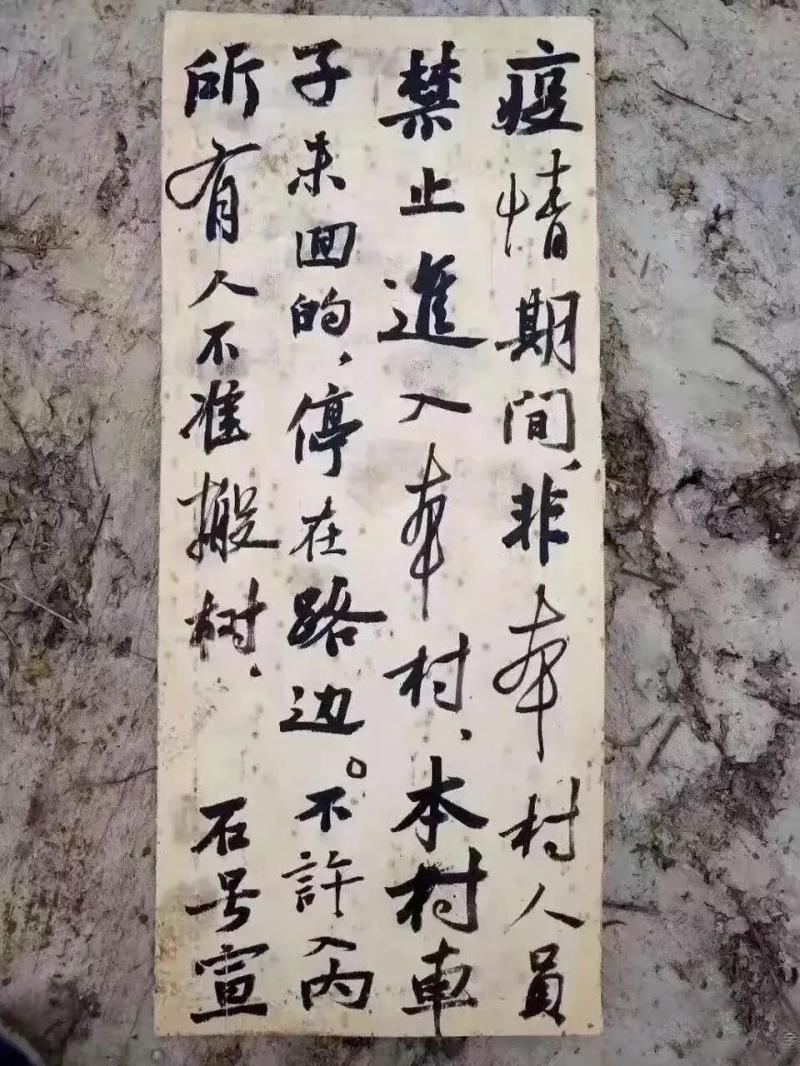 疫情期间、非本村人员
禁止進入本村、本村車
子未回的，停在路边。不許入内
所有人不准搬树．石号宣